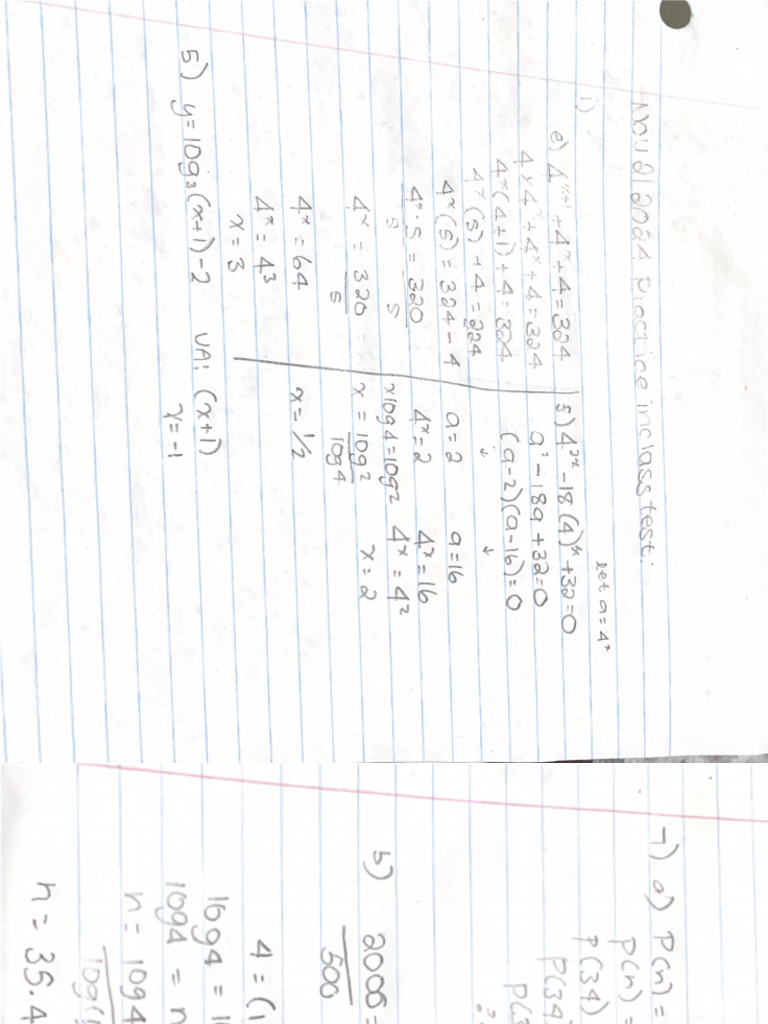 Nov 21 2024 Practice in class test:
1)
e) 4ˣ⁺¹ + 4ˣ + 4 = 324
4 × 4ˣ + 4ˣ + 4 = 324
4ˣ(4+1) + 4 = 324
4ˣ(5) + 4 = 324
4ˣ(5) = 324 - 4
4ˣ·5 = 320
5 5
4ˣ = 320
5
4ˣ = 64
4ˣ = 4³
x = 3
let a = 4ˣ
f) 4²ˣ - 18(4)ˣ + 32 = 0
a² - 18a + 32 = 0
(a-2)(a-16) = 0
↓ ↓
a = 2 a = 16
4ˣ = 2 4ˣ = 16
xlog4 = log2 4ˣ = 4²
x = log2 x = 2
log4
x = 1/2
5) y = log₃(x+1) - 2 VA: (x+1)
x = -1
7) a) P(n) =
P(n) =
P(34)
P(34
P(3
b) 2000 =
500
4 = (1
log4 = l
log4 = n
n = log4
log(1
n = 35.4